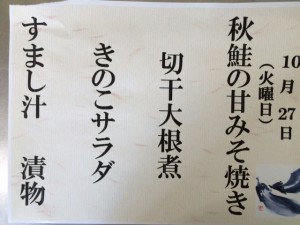 10月27日
(火曜日)
秋鮭の甘みそ焼き
切干大根煮
きのこサラダ
すまし汁 漬物